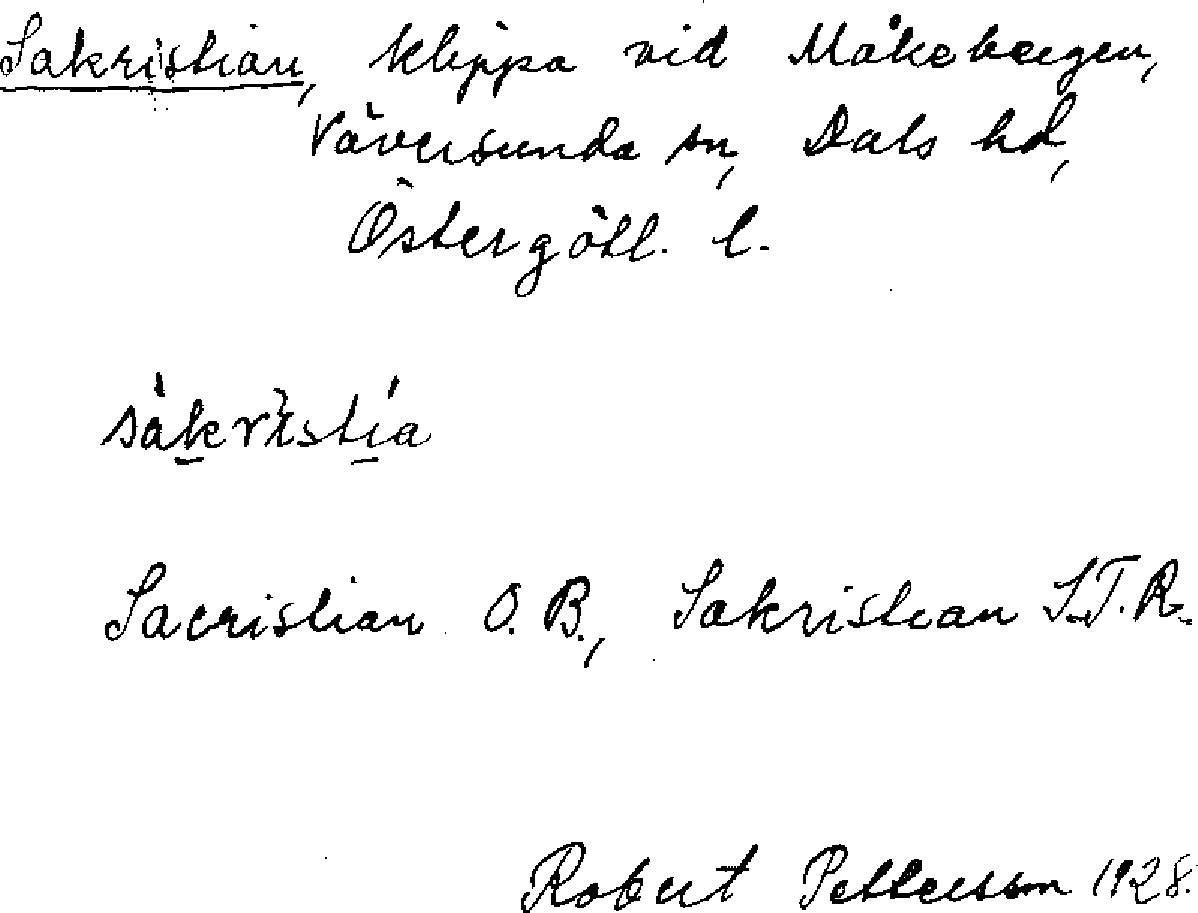 Sakristian, klippa vid Måkebergen,
Väversunda sn, Dals hd,
Östergötl. l.
sàkristía
Sacristian O. B., Sakristian S.T.R.
Robert Pettersson 1928.